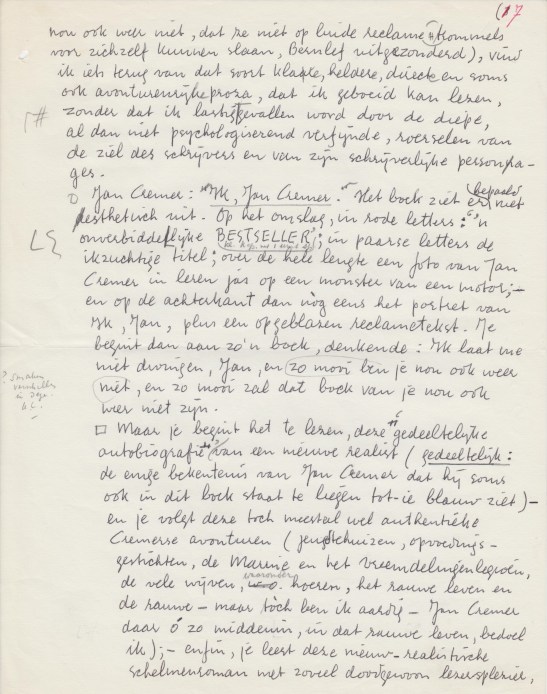 17
nou ook weer niet, dat ze niet op luide reclame trommels
voor zichzelf kunnen slaan, Bernlef uitgezonderd), vind
ik iets terug van dat soort klare, heldere, directe en soms
ook avonturenrijke proza, dat ik geboeid kan lezen,
zonder dat ik lastig gevallen word door de diepe,
al dan niet psychologiserend verfijnde, roerselen van
de ziel des schrijvers en van zijn schrijverlijke persona-
ges.
Jan Cremer: "Ik, Jan Cremer." Het boek ziet er bepaald niet
esthetisch uit. Op het omslag, in rode letters: 'n
onverbiddelijke BESTSELLER'; in paarse letters de
ikzuchtige titel; over de hele lengte een foto van Jan
Cremer in leren jas op een monster van een motor; –
en op de achterkant dan nòg eens het portret van
Ik, Jan, plus een opgeblazen reclametekst. Je
begint dan aan zo'n boek, denkende: Ik laat me
niet dwingen, Jan, en zo mooi ben je nou ook weer
niet, en zo mooi zal dat boek van je nou ook
weer niet zijn.
Maar je begint het te lezen, deze "gedeeltelijke
autobiografie" van een nieuwe realist (gedeeltelijk:
de enige bekentenis van Jan Cremer dat hij soms
ook in dit boek staat te liegen tot-ie blauw ziet) –
en je volgt deze toch meestal wel authentieke
Cremerse avonturen (jeugdhuizen, opvoedings-
gestichten, de Marine en het Vreemdelingenlegioen,
de vele wijven, waaronder hoeren, het rauwe leven en
de rauwe – maar tòch ben ik aardig – Jan Cremer
daar ó zo middenin, in dat rauwe leven, bedoel
ik); – enfin, je leest deze nieuw-realistische
schelmenroman met zoveel doodgewoon lezersplezier,